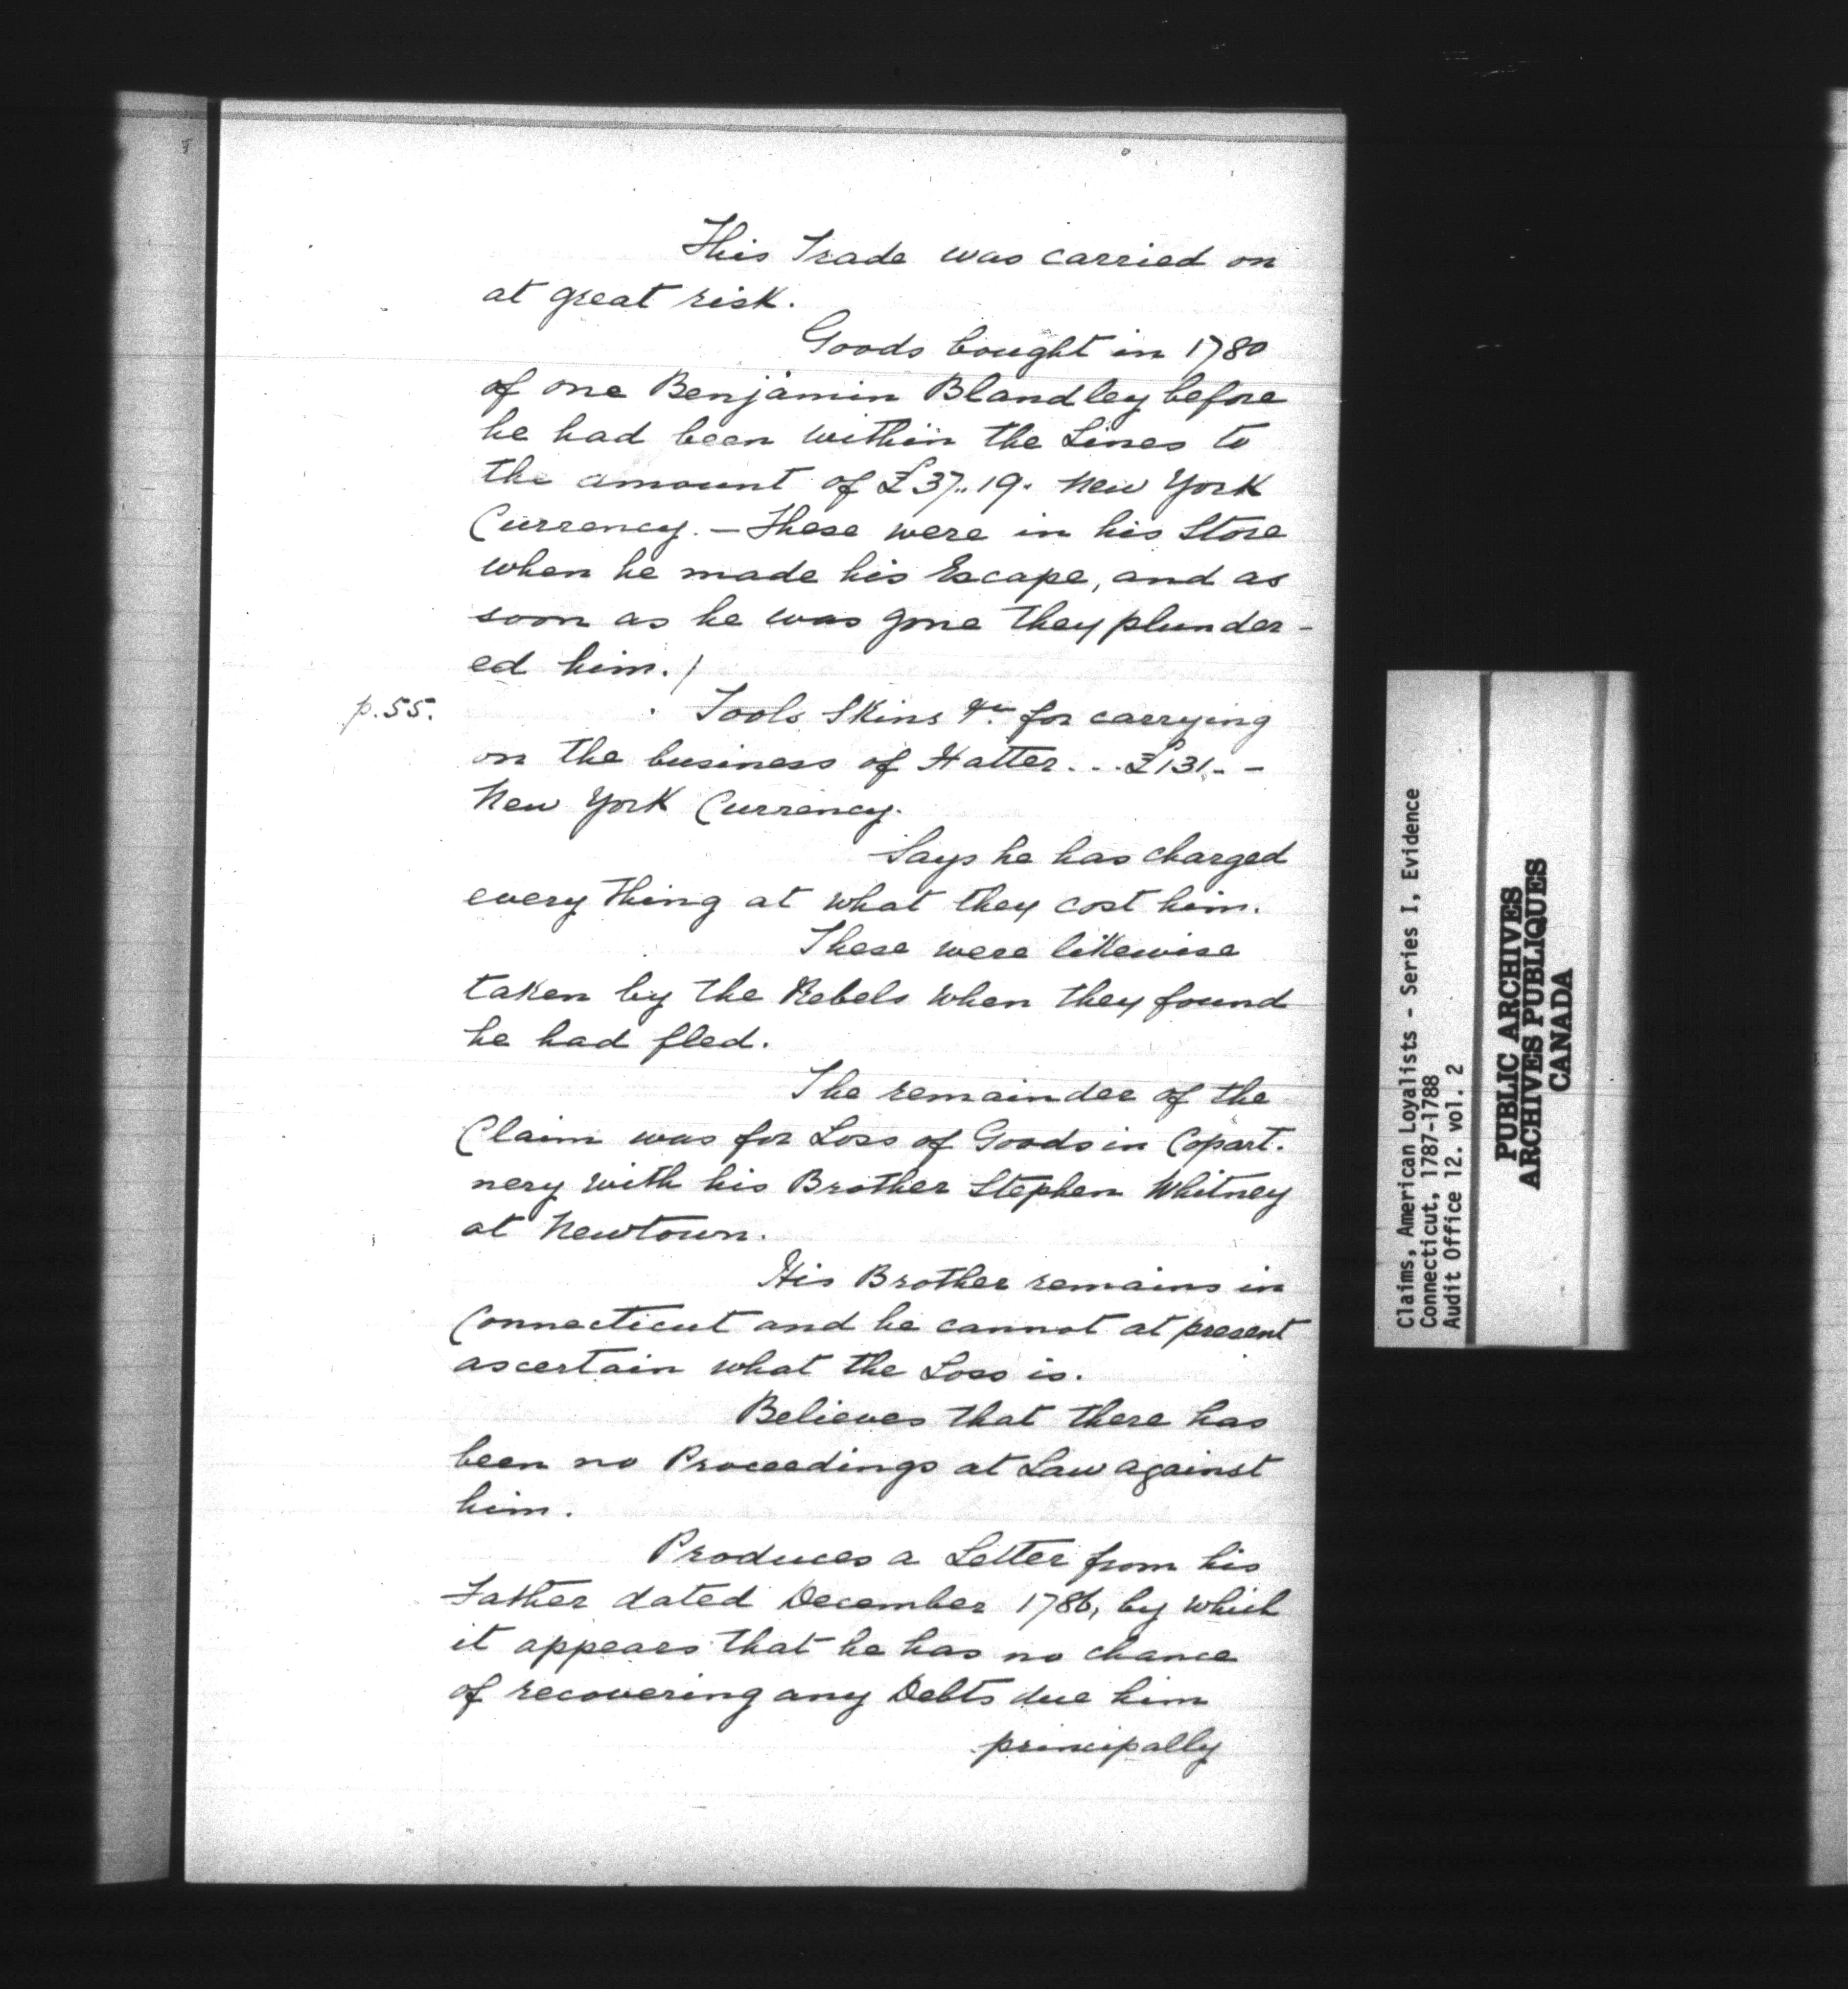 This Trade was carried on
at great risk.
Goods bought in 1780
of one Benjamin Blandley before
he had been within the Lines to
the amount of £37..19. New York
Currency. — These were in his Store
when he made his Escape, and as
soon as he was gone they plunder-
ed him. /
p.55. Tools Skins &c. for carrying
on the business of Hatter... £131.-
New York Currency.
Says he has charged
every thing at what they cost him.
These were likewise
taken by the Rebels when they found
he had fled.
The remainder of the
Claim was for Loss of Goods in Copart-
nery with his Brother Stephen Whitney
at Newtown.
His Brother remains in
Connecticut and he cannot at present
ascertain what the Loss is.
Believes that there has
been no Proceedings at Law against
him.
Produces a Letter from his
Father dated December 1786, by which
it appears that he has no chance
of recovering any Debts due him
principally
Claims, American Loyalists - Series I, Evidence
Connecticut, 1787-1788
Audit Office 12. vol. 2
PUBLIC ARCHIVES
ARCHIVES PUBLIQUES
CANADA